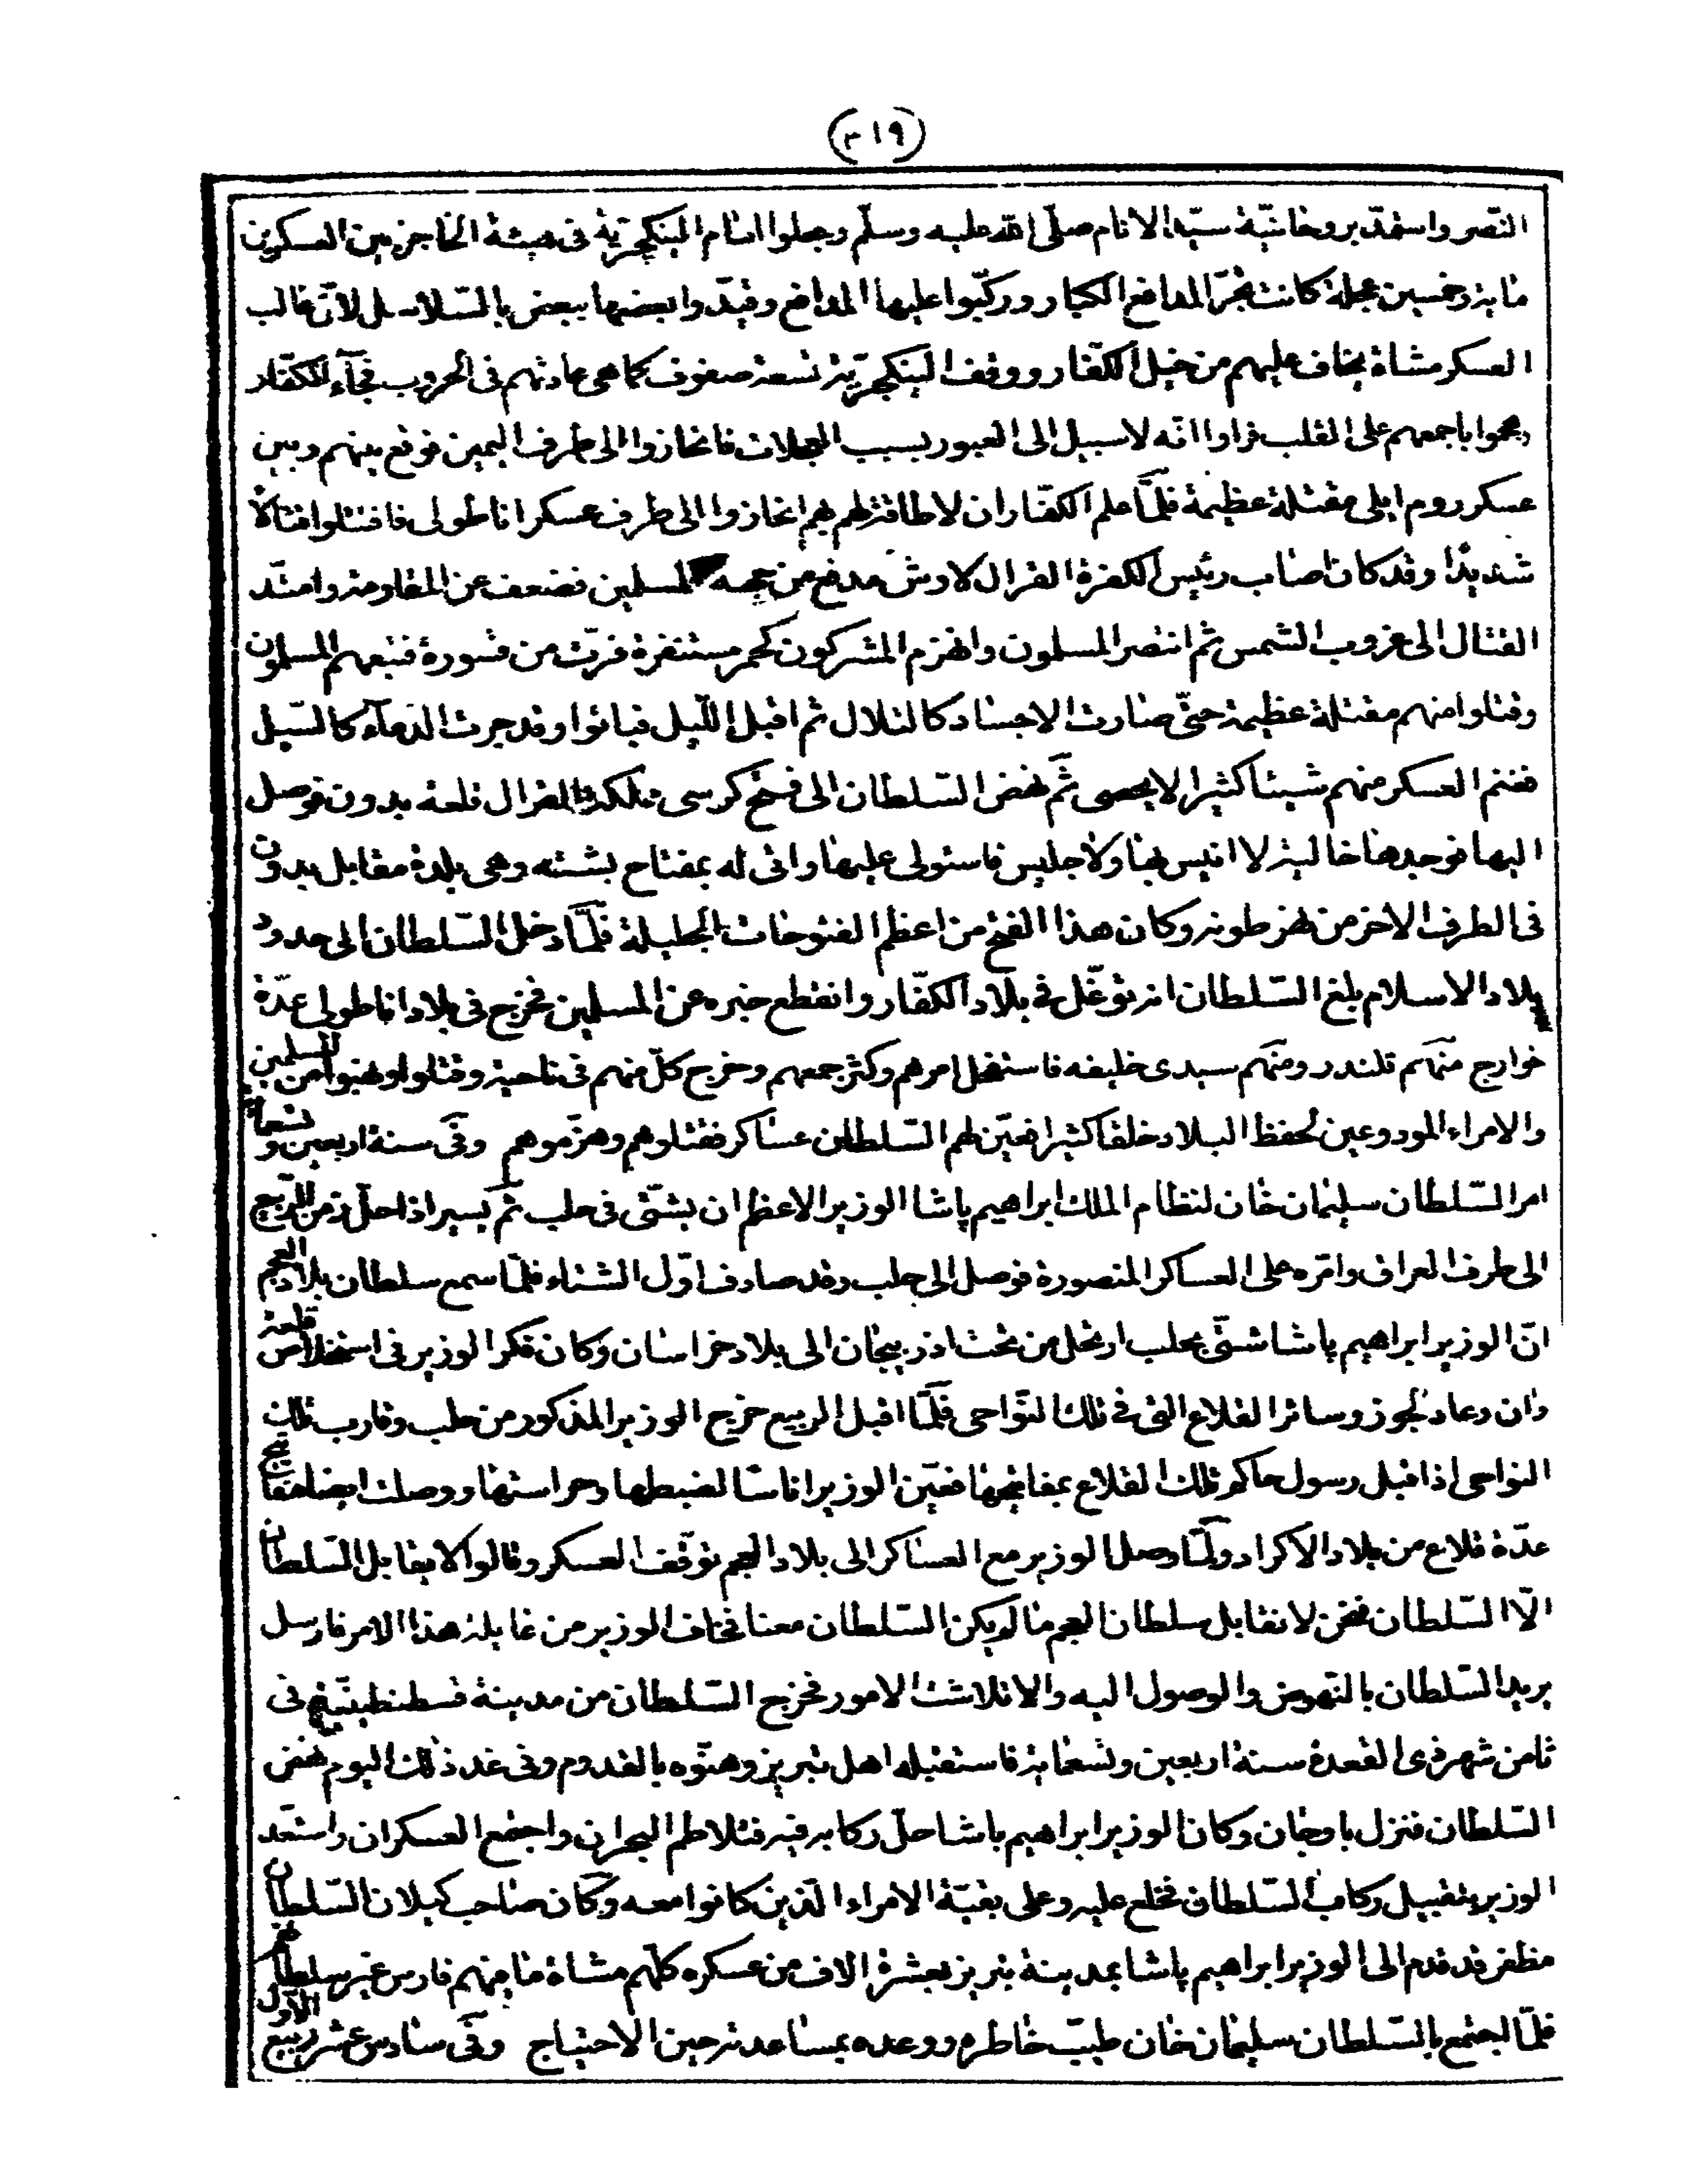 (٣١٩)
النّصر واستمدّ بروحانيّة سيّد الانام صلّى الله عليه وسلّم وجعلوا امام الينكجرية فى هيئة الحاجز بين العسكرين
مايه وخمسين عجلة كانت تجرّ المدافع الكبار وركّبوا عليها المدافع وقيّدوا بعضها ببعض بالسّلاسل لانّ غالب
العسكر مشاة يخاف عليهم من خيل الكفّار ووقف الينكجريّة تسعة صفوف كما هى عادتهم فى الحروب فجآء الكفّار
وهجموا باجمعهم على القلب فراوا انّه لا سبيل الى العبور بسبب العجلات فانحازوا الى طرف اليمين فوقع بينهم وبين
عسكر روم ايلى مقتلة عظيمة فلمّا علم الكفّار ان لا طاقة لهم بهم انحازوا الى طرف عسكر اناطولى فاقتتلوا قتالا
شديدا وقد كان اصاب رئيس الكفرة القرال لاوش مدفع من جهة المسلمين فضعف عن المقاومة وامتدّ
القتال الى غروب الشمس ثم انتصر المسلمون وانهزم المشركون كحمر مستنفرة فرّت من قسورة فتبعهم المسلمون
وقتلوا منهم مقتلة عظيمة حتّى صارت الاجساد كالتلال ثم اقبل اللّيل فباتوا وقد جرت الدّماء كالسّيل
فغنم العسكر منهم شيئا كثيرا لا يحصى ثمّ نهض السّلطان الى فتح كرسى مملكة القرال قلعة بدون فوصل
اليها فوجدها خالية لا انيس بها ولا جليس فاستولى عليها واتى له بمفتاح بشته وهى بلدة مقابل بدون
فى الطرف الاخر من نهر طونه وكان هذا الفتح من اعظم الفتوحات الجليلة فلمّا دخل السّلطان الى حدود
بلاد الاسلام بلغ السّلطان انه توغّل فى بلاد الكفّار وانقطع خبره عن المسلمين فخرج فى بلاد اناطولى عدّة
خوارج منهم قلندر ومنهم سيدى خليفه فاستفحل امرهم وكثر جمعهم وخرج كلّ منهم فى ناحية وقتلوا ونهبوا من المسلمين
والامراء المودوعين لحفظ البلاد خلقا كثيرا فعيّن لهم السّلطان عساكر فقتلوهم وهزموهم وفى سنة اربعين وتسعمائة
امر السّلطان سليمان خان لنظام الملك ابراهيم پاشا الوزير الاعظم ان يشتّى فى حلب ثمّ يسير اذا حلّ زمن الرّبيع
الى طرف العراق وامّره على العساكر المنصورة فوصل الى حلب وقد صادف اوّل الشتاء فلمّا سمع سلطان بلاد العجم
انّ الوزير ابراهيم پاشا شتّى بحلب ارتحل من تخت اذربيجان الى بلاد خراسان وكان فكر الوزير فى استخلاص قلعة
وان وعاد لجوز وسائر القلاع التى فى تلك النّواحى فلمّا اقبل الربيع خرج الوزير المذكور من حلب وقارب تلك
النواحى اذ اقبل رسول حاكم تلك القلاع بمفاتيحها فعيّن الوزير اناسا لضبطها وحراستها ووصلت ايضا مفاتيح
عدّة قلاع من بلاد الاكراد ولمّا وصل الوزير مع العساكر الى بلاد العجم توقّف العسكر وقالوا لا يقابل السّلطان
الّا السّلطان فنحن لا نقابل سلطان العجم ما لم يكن السّلطان معنا فخاف الوزير من غايلة هذا الامر فارسل
بريد السّلطان بالنّهوض والوصول اليه والا تلاشت الامور فخرج السّلطان من مدينة قسطنطينيّة فى
ثامن شهر ذى القعدة سنة اربعين وتسعمايه فاستقبله اهل تبريز وهنّوه بالقدوم وفى غد ذلك اليوم نهض
السّلطان فنزل باوجان وكان الوزير ابراهيم پاشا حلّ ركابه فيه فتلاطم البحران واجتمع العسكران واستعد
الوزير بتقبيل ركاب السّلطان فخلع عليه وعلى بقيّة الامراء الّذين كانوا معه وكان صاحب كيلان السّلطان
مظفر قد قدم الى الوزير ابراهيم پاشا بمدينة تبريز بعشرة الاف من عسكره كلّهم مشاة ما منهم فارس غير سلطانهم
فلمّا اجتمع بالسّلطان سليمان خان طيّب خاطره ووعده بمساعدته حين الاحتياج وفى سادس عشر ربيع الاوّل